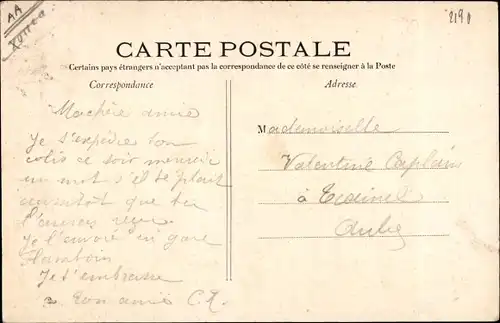 AA
2190
CARTE POSTALE
Certains pays étrangers n'acceptant pas la correspondance de ce côté se renseigner à la Poste
Correspondance
Adresse
Ma chère amie
Je t'expédie ton
colis ce soir
un mot s'il te plait
aussitot que tu
l'auras reçu
Je l'envoie en gare
Flamboin
Je t'embrasse
Ton amie C.R.
Mademoiselle
Valentine
à
Aube